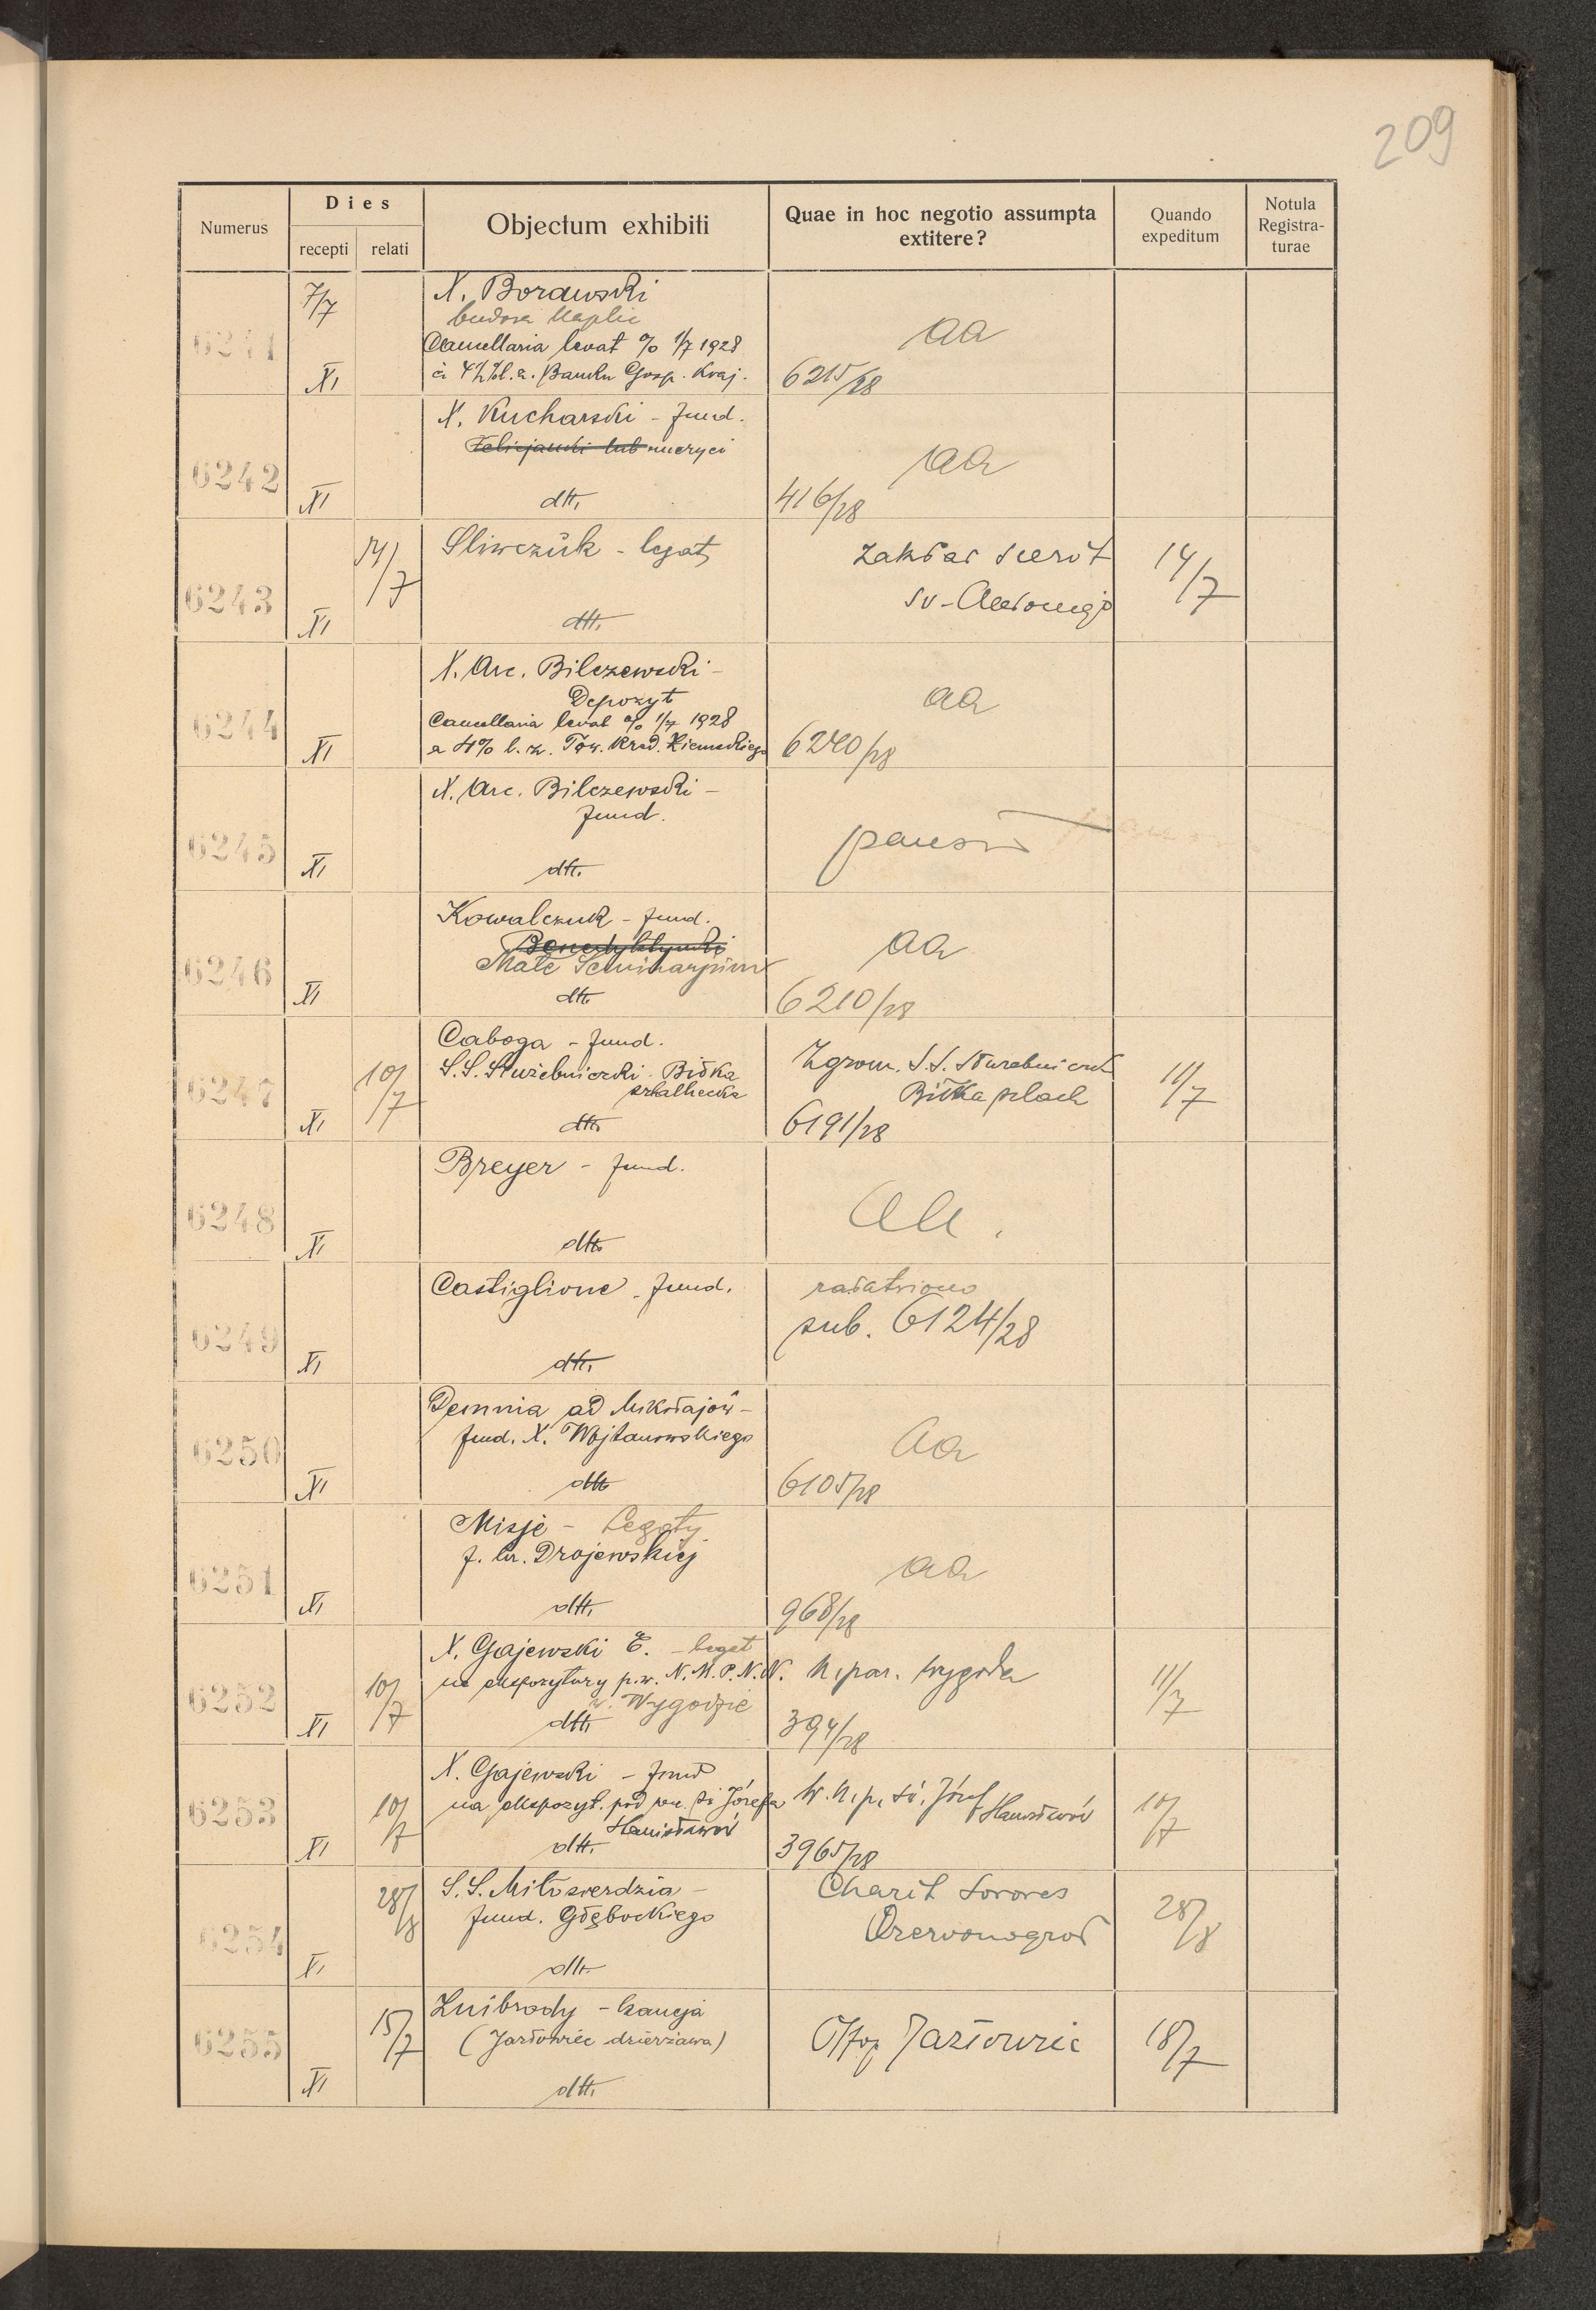 209
Numerus
Dies
recepti
relati
Objectum exhibiti
Quae in hoc negotio assumpta
extitere?
Quando
expeditum
Notula
Registra-
turae
6241
7/7
XI
X. Borawski
Cancellaria levat % 1/7 1928
Banku Gosp. Kraj.
aa
6215/28
6242
XI
X. Kucharski - fund.
dtt.
aa
416/28
6243
XI
14/7
Śliwczuk - legat
dtt.
Zakład sierot
14/7
6244
XI
X. Arc. Bilczewski -
Depozyt
Cancellaria levat % 1/7 1928
a 4% l. z. Tow. Kred. Ziemskiego
aa
6240/28
6245
XI
X. Arc. Bilczewski -
fund.
dtt.
6246
XI
Kowalczuk - fund.
Benedyktynki
Małe Seminarjum
dtt.
aa
6210/28
6247
XI
10/7
Caboga - fund.
S.S. Służebniczki - Biłka
szlachecka
dtt.
Zgrom. S.S. Służebniczek
Biłka szlach
6191/28
11/7
6248
XI
Breyer - fund.
dtt.
aa.
6249
XI
Castiglione - fund.
dtt.
załatwiono
sub. 6124/28
6250
XI
Demnia ad Mikołajów -
fund. X. Wojtanowskiego
dtt.
aa
6105/28
6251
XI
Misje - Legaty
f. hr. Drojewskiej
dtt.
aa
968/28
6252
XI
10/7
X. Gajewski E. - legat
na ekspozytury p.w. N.M.P.N.N.
w Wygodzie
dtt.
U. par. Wygoda
394/28
11/7
6253
XI
10/7
X. Gajewski - fund
na ekspozyt. pod wu. św Józefa
Stanisławów
dtt.
św. Józef
Stanisławów
3965/28
10/7
6254
XI
28/8
S.S. Miłosierdzia -
fund. Głębockiego
dtt.
Charit Sorores
Czerwonogród
28/8
6255
XI
15/7
Znibrody - kaucja
(Jazłowiec dzierżawa)
dtt.
Jazłowiec
18/7